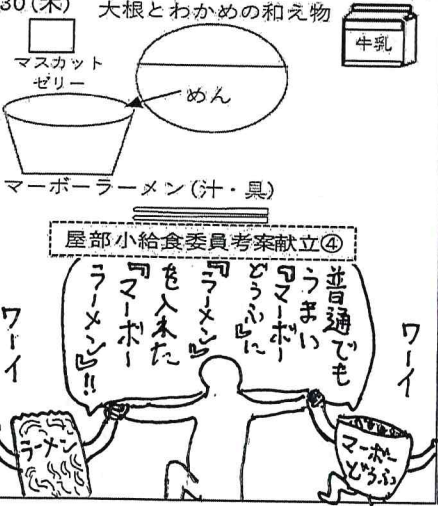 30(木)
大根とわかめの和え物
牛乳
マスカット
ゼリー
めん
マーボーラーメン(汁・具)
屋部小給食委員考案献立④
普通でも
うまい
『マーボー
どうふ』に
『ラーメン』
を入れた
『マーボー
ラーメン』!!
ワーイ
ワーイ
ラーメン
マーボー
どうふ